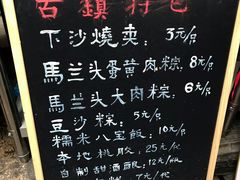 古鎮特色
下沙燒卖：3元/只
馬兰头蛋黄肉粽：8元/只
馬兰头大肉粽：6元/只
豆沙粽：5元/只
糯米八宝飯：10元/只
本地桃胶：25元/
自制甜酒酿：12元/
7元/